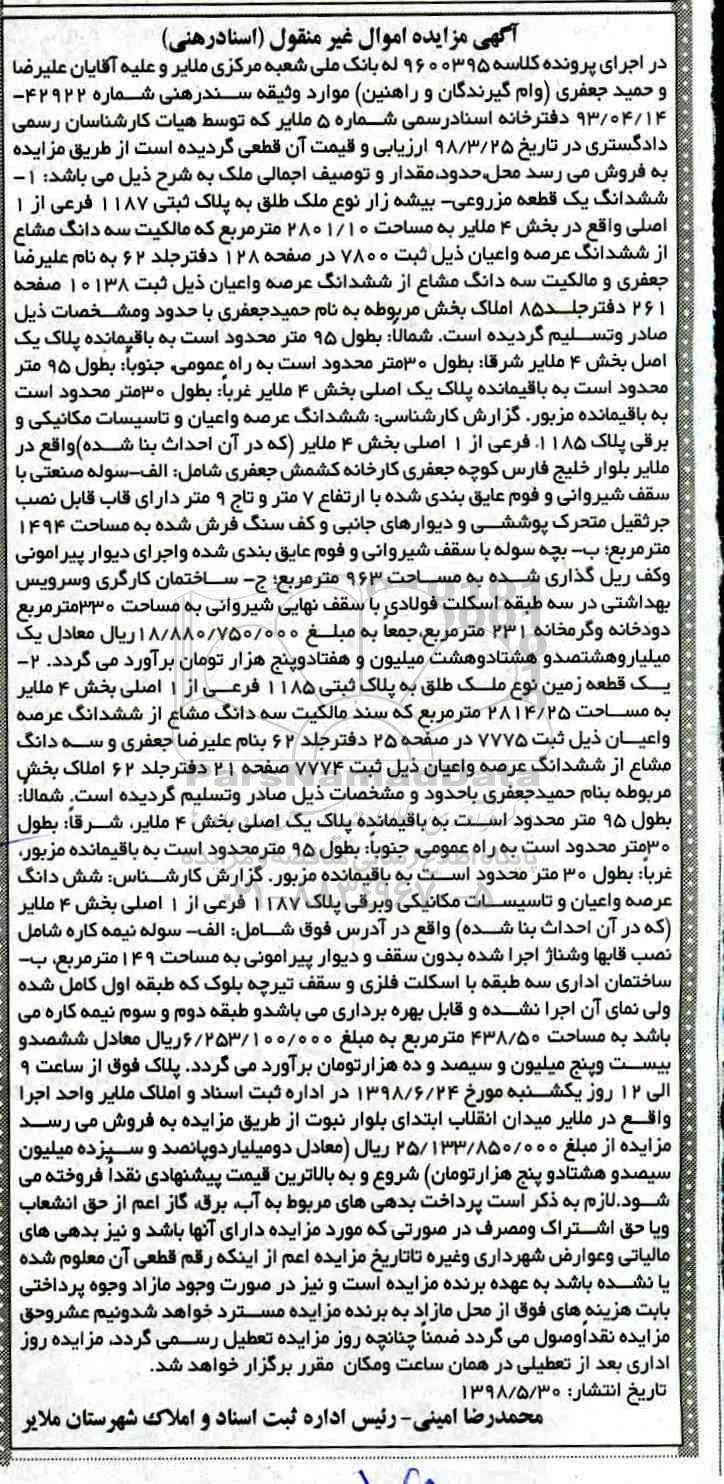 آگهی مزایده اموال غیر منقول (اسنادرهنی)
در اجرای پرونده کلاسه ۹۶۰۰۳۹۵ له بانک ملی شعبه مرکزی ملایر و علیه آقایان علیرضا
و حمید جعفری (وام گیرندگان و راهنین) موارد وثیقه سندرهنی شماره ۴۲۹۲۲-
۹۳/۰۴/۱۴ دفترخانه اسنادرسمی شماره ۵ ملایر که توسط هیات کارشناسان رسمی
دادگستری در تاریخ ۹۸/۳/۲۵ ارزیابی و قیمت آن قطعی گردیده است از طریق مزایده
به فروش می رسد محل،حدود،مقدار و توصیف اجمالی ملک به شرح ذیل می باشد: ۱-
ششدانگ یک قطعه مزروعی- بیشه زار نوع ملک طلق به پلاک ثبتی ۱۱۸۷ فرعی از ۱
اصلی واقع در بخش ۴ ملایر به مساحت ۲۸۰۱/۱۰ مترمربع که مالکیت سه دانگ مشاع
از ششدانگ عرصه واعیان ذیل ثبت ۷۸۰۰ در صفحه ۱۲۸ دفترجلد ۶۲ به نام علیرضا
جعفری و مالکیت سه دانگ مشاع از ششدانگ عرصه واعیان ذیل ثبت ۱۰۱۳۸ صفحه
۲۶۱ دفترجلد۸۵ املاک بخش مربوطه به نام حمیدجعفری با حدود ومشخصات ذیل
صادر وتسلیم گردیده است. شمالاً: بطول ۹۵ متر محدود است به باقیمانده پلاک یک
اصل بخش ۴ ملایر شرقا: بطول ۳۰متر محدود است به راه عمومی، جنوباً: بطول ۹۵ متر
محدود است به باقیمانده پلاک یک اصلی بخش ۴ ملایر غرباً: بطول ۳۰متر محدود است
به باقیمانده مزبور. گزارش کارشناسی: ششدانگ عرصه واعیان و تاسیسات مکانیکی و
برقی پلاک ۱۱۸۵ فرعی از ۱ اصلی بخش ۴ ملایر (که در آن احداث بنا شده)واقع در
ملایر بلوار خلیج فارس کوچه جعفری کارخانه کشمش جعفری شامل: الف-سوله صنعتی با
سقف شیروانی و فوم عایق بندی شده با ارتفاع ۷ متر و تاج ۹ متر دارای قاب قابل نصب
جرثقیل متحرک پوششی و دیوارهای جانبی و کف سنگ فرش شده به مساحت ۱۴۹۴
مترمربع؛ ب- بچه سوله با سقف شیروانی و فوم عایق بندی شده واجرای دیوار پیرامونی
وکف ریل گذاری شده به مساحت ۹۶۳ مترمربع؛ ج- ساختمان کارگری وسرویس
بهداشتی در سه طبقه اسکلت فولادی با سقف نهایی شیروانی به مساحت ۳۳۰مترمربع
دودخانه وگرمخانه ۲۳۱ مترمربع،جمعاً به مبلغ ۱۸/۸۸۰/۷۵۰/۰۰۰ریال معادل یک
میلیاروهشتصدو هشتادوهشت میلیون و هفتادوپنج هزار تومان برآورد می گردد. ۲-
یک قطعه زمین نوع ملک طلق به پلاک ثبتی ۱۱۸۵ فرعی از ۱ اصلی بخش ۴ ملایر
به مساحت ۲۸۱۴/۲۵ مترمربع که سند مالکیت سه دانگ مشاع از ششدانگ عرصه
واعیان ذیل ثبت ۷۷۷۵ در صفحه ۲۵ دفترجلد ۶۲ بنام علیرضا جعفری و سه دانگ
مشاع از ششدانگ عرصه واعیان ذیل ثبت ۷۷۷۴ صفحه ۲۱ دفترجلد ۶۲ املاک بخش
مربوطه بنام حمیدجعفری باحدود و مشخصات ذیل صادر وتسلیم گردیده است. شمالاً:
بطول ۹۵ متر محدود است به باقیمانده پلاک یک اصلی بخش ۴ ملایر، شرقاً: بطول
۳۰متر محدود است به راه عمومی، جنوباً: بطول ۹۵ مترمحدود است به باقیمانده مزبور،
غرباً: بطول ۳۰ متر محدود است به باقیمانده مزبور. گزارش کارشناس: شش دانگ
عرصه واعیان و تاسیسات مکانیکی وبرقی پلاک ۱۱۸۷ فرعی از ۱ اصلی بخش ۴ ملایر
(که در آن احداث بنا شده) واقع در آدرس فوق شامل: الف- سوله نیمه کاره شامل
نصب قابها وشناژ اجرا شده بدون سقف و دیوار پیرامونی به مساحت ۱۴۹مترمربع، ب-
ساختمان اداری سه طبقه با اسکلت فلزی و سقف تیرچه بلوک که طبقه اول کامل شده
ولی نمای آن اجرا نشده و قابل بهره برداری می باشدو طبقه دوم و سوم نیمه کاره می
باشد به مساحت ۴۳۸/۵۰ مترمربع به مبلغ ۶/۲۵۳/۱۰۰/۰۰۰ریال معادل ششصدو
بیست وپنج میلیون و سیصد و ده هزارتومان برآورد می گردد. پلاک فوق از ساعت ۹
الی ۱۲ روز یکشنبه مورخ ۱۳۹۸/۶/۲۴ در اداره ثبت اسناد و املاک ملایر واحد اجرا
واقع در ملایر میدان انقلاب ابتدای بلوار نبوت از طریق مزایده به فروش می رسد
مزایده از مبلغ ۲۵/۱۳۳/۸۵۰/۰۰۰ ریال (معادل دومیلیاردوپانصد و سیزده میلیون
سیصدو هشتادو پنج هزارتومان) شروع و به بالاترین قیمت پیشنهادی نقداً فروخته می
شود.لازم به ذکر است پرداخت بدهی های مربوط به آب، برق، گاز اعم از حق انشعاب
ویا حق اشتراک ومصرف در صورتی که مورد مزایده دارای آنها باشد و نیز بدهی های
مالیاتی وعوارض شهرداری وغیره تاتاریخ مزایده اعم از اینکه رقم قطعی آن معلوم شده
یا نشده باشد به عهده برنده مزایده است و نیز در صورت وجود مازاد وجوه پرداختی
بابت هزینه های فوق از محل مازاد به برنده مزایده مسترد خواهد شدونیم عشروحق
مزایده نقداًوصول می گردد ضمناً چنانچه روز مزایده تعطیل رسمی گردد، مزایده روز
اداری بعد از تعطیلی در همان ساعت ومکان مقرر برگزار خواهد شد.
تاریخ انتشار: ۱۳۹۸/۵/۳۰
محمدرضا امینی- رئیس اداره ثبت اسناد و املاک شهرستان ملایر
ParsNamadData
پایگاه اطلاع رسانی مناقصه و مزایده